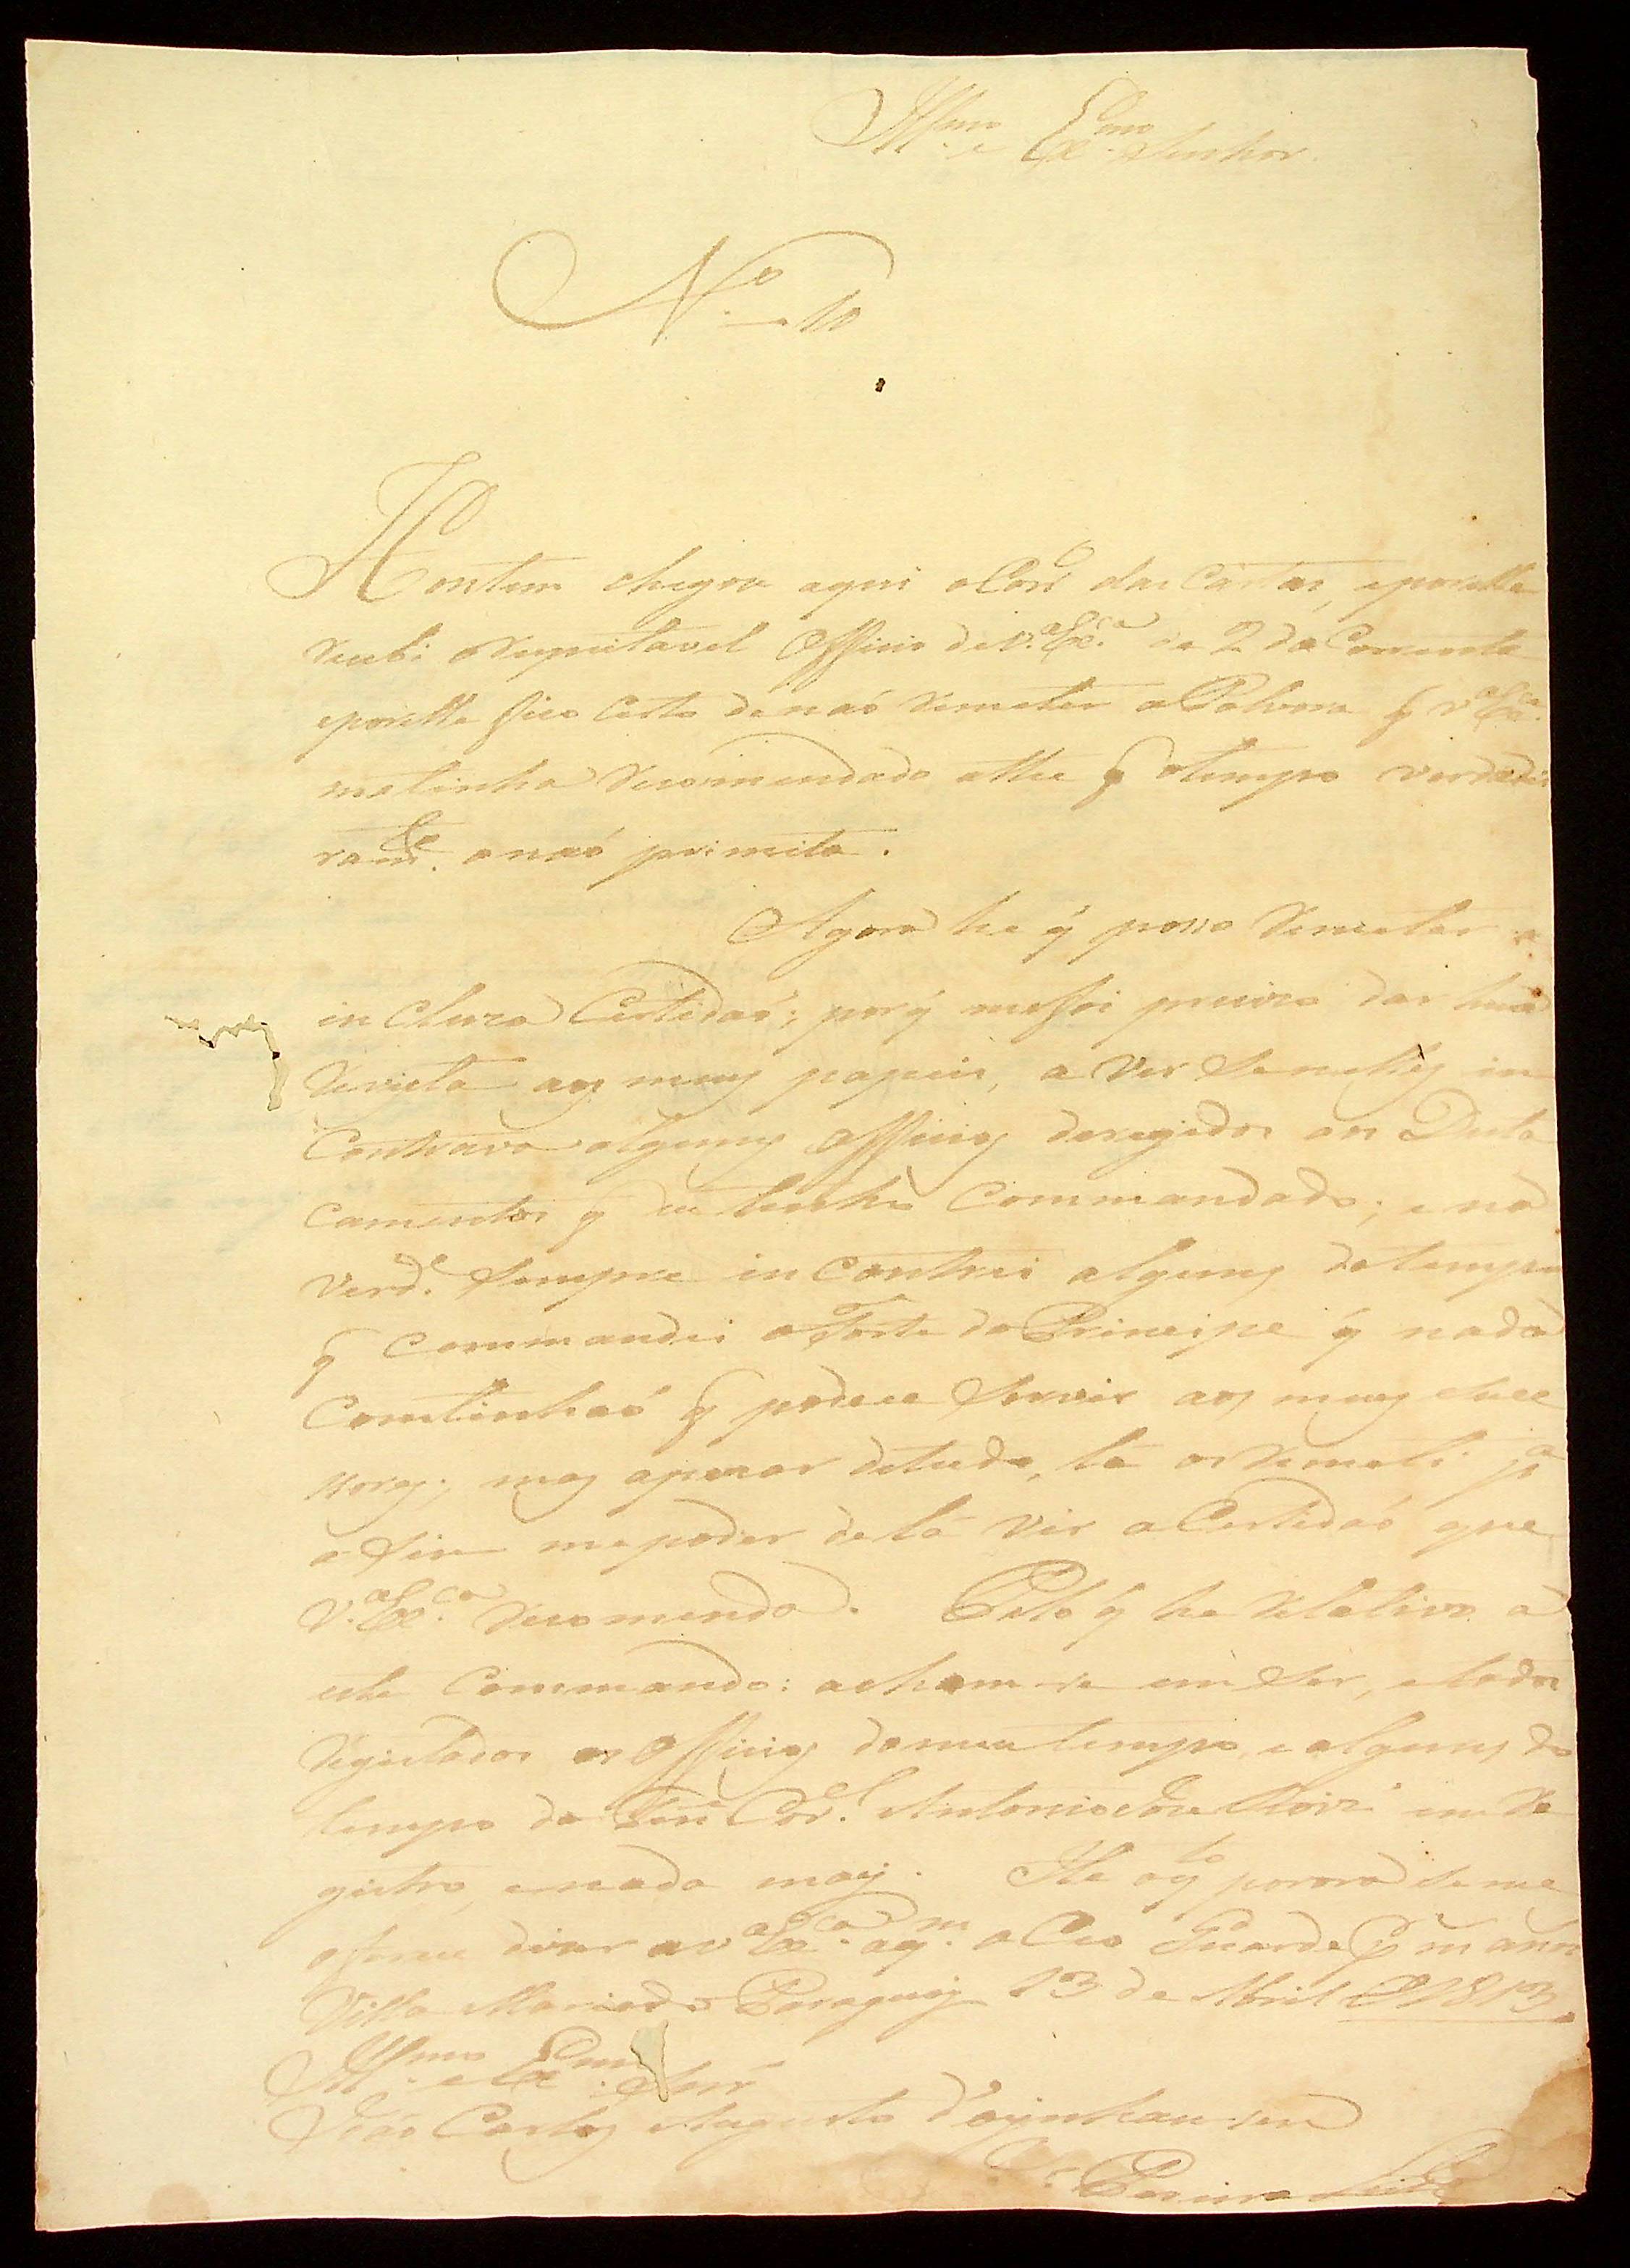 Ill.mo e Ex.mo Senhor
N.o 10
Hontem chegou aqui o Corr.o das Cartas, eporelle
recebi o respeitavel Officio de V.a Ex.ca de 2 do Corrente
eporelle fico certo de naó remeter a Polvora q̃ V.a Ex.ca
metinha recomendado athe q̃ otempo verdadei
ram.te onaó primita.
Agora he q̃ posso remeter a
incluza Certidaó; por q̃ mefoi precizo dar huã
revista aos meus papeis, a ver se nelles in
Contrava alguns Officios deregidos aos Desta
camentos q̃ eu tenho Commandado; e na
verd.e sempre inContrei alguns do tempo
q̃ Commandei o Forte do Principe q̃ nada
Comtinhaó q̃ podece servir aos meus suce
ssores; mas apezar detudo, lá os remeti p.a
a fim me poder de lá vir a Certidaó que
V.a Ex.ca recomenda. Pelo q̃ he relativo a
este Commando: acham-se em ser, e todos
registados os Officios domeu tempo, e alguns do
tempo do Ten.e Cor.el Antonio Joze Roiz' em re
gistro, enada mais. He oq.to porora se me
oferece dizer a V.a Ex.ca aq.m o Ceo Guarde p.r m.s ann.s
Villa Maria do Paraguay 13 de Abril d'1813.
Ill.mo e Ex.mo Snr'
Joáo Carlos Augusto d'oynhausen
Pereira Leite